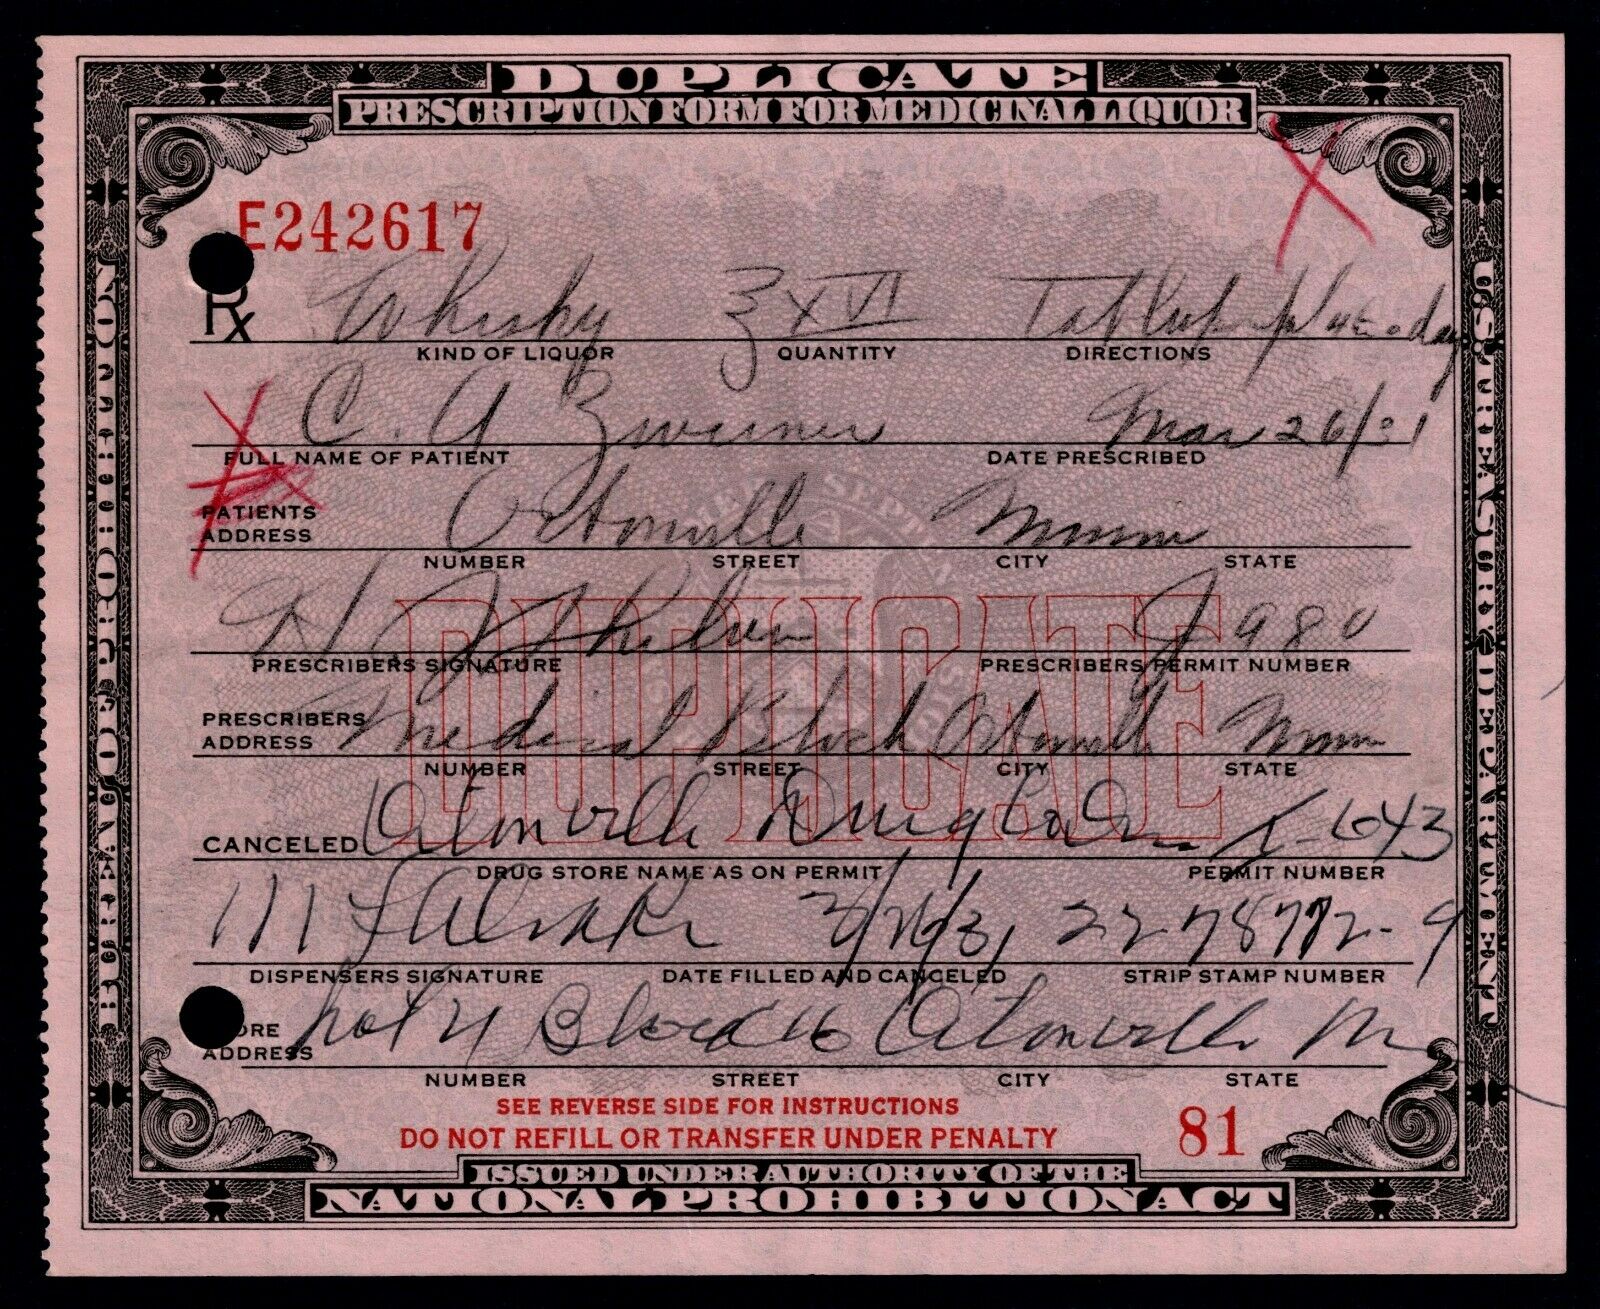 DUPLICATE
PRESCRIPTION FORM FOR MEDICINAL LIQUOR
E242617
Rx Whisky ℥XVI
KIND OF LIQUOR QUANTITY DIRECTIONS
C. A Mar 26/31
FULL NAME OF PATIENT DATE PRESCRIBED
PATIENTS
ADDRESS Ortonville Minn
NUMBER STREET CITY STATE
DUPLICATE
H. J 980
PRESCRIBERS SIGNATURE PRESCRIBERS PERMIT NUMBER
PRESCRIBERS
ADDRESS Medical Block Ortonville Minn
NUMBER STREET CITY STATE
CANCELED Ortonville Drug 643
DRUG STORE NAME AS ON PERMIT PERMIT NUMBER
3/26/31
DISPENSERS SIGNATURE DATE FILLED AND CANCELED STRIP STAMP NUMBER
ORE
ADDRESS Ortonville
NUMBER STREET CITY STATE
SEE REVERSE SIDE FOR INSTRUCTIONS
DO NOT REFILL OR TRANSFER UNDER PENALTY 81
ISSUED UNDER AUTHORITY OF THE
NATIONAL PROHIBITION ACT